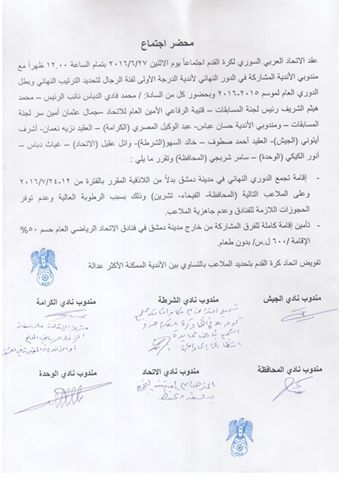 محضر اجتماع
عقد الاتحاد العربي السوري لكرة القدم اجتماعاً يوم الاثنين ٢٠١٦/٦/٢٧ بتمام الساعة ١٢.٠٠ ظهراً مع
مندوبي الأندية المشاركة في الدور النهائي لأندية الدرجة الأولى لفئة الرجال لتحديد الترتيب النهائي وبطل
الدوري العام لموسم ٢٠١٥-٢٠١٦ وبحضور كل من السادة: / محمد فادي الدباس نائب الرئيس – محمد
هيثم الشريف رئيس لجنة المسابقات – قتيبة الرفاعي الأمين العام للاتحاد – جمال عثمان أمين سر لجنة
المسابقات – ومندوبي الأندية حسان عباس- عبد الوكيل المصري (الكرامة) – العقيد نزيه نعمان- أشرف
أيتوني (الجيش)- العقيد أحمد صطوف – خالد السهو (الشرطة)- وائل عقيل (الاتحاد) – غياث دباس –
أنور الكيكي (الوحدة) – سامر شربجي (المحافظة)/ وتقرر ما يلي :
- إقامة تجمع الدوري النهائي في مدينة دمشق بدلاً من اللاذقية المقرر بالفترة من ١٢-٢٠١٦/٧/٢٤
وعلى الملاعب التالية (المحافظة- الفيحاء- تشرين) وذلك بسبب الرطوبة العالية وعدم توفر
الحجوزات اللازمة للفنادق وعدم جاهزية الملاعب.
- تأمين إقامة كاملة للفرق المشاركة من خارج مدينة دمشق في فنادق الاتحاد الرياضي العام حسم ٥٠%
الإقامة /٦٠٠ ل.س/ بدون طعام.
تفويض اتحاد كرة القدم بتحديد الملاعب بالتساوي بين الأندية الممكنة الأكثر عدالة
مندوب نادي الجيش مندوب نادي الشرطة مندوب نادي الكرامة
مندوب نادي المحافظة مندوب نادي الاتحاد مندوب نادي الوحدة